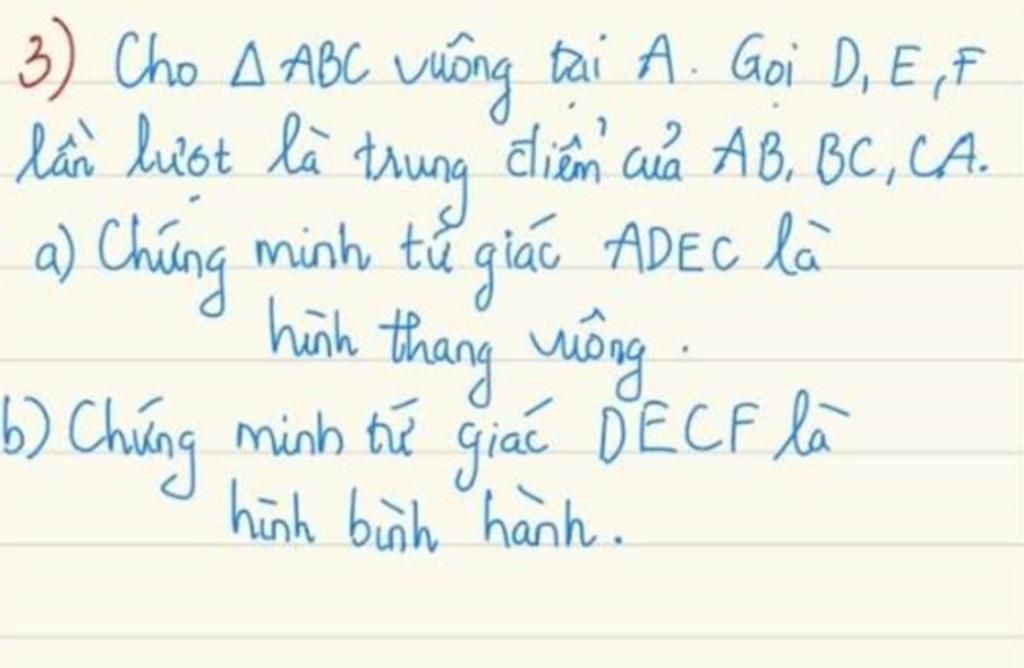 3) Cho Δ ABC vuông tại A. Gọi D, E, F
lần lượt là trung điểm của AB, BC, CA.
a) Chứng minh tứ giác ADEC là
hình thang vuông.
b) Chứng minh tứ giác DECF là
hình bình hành.